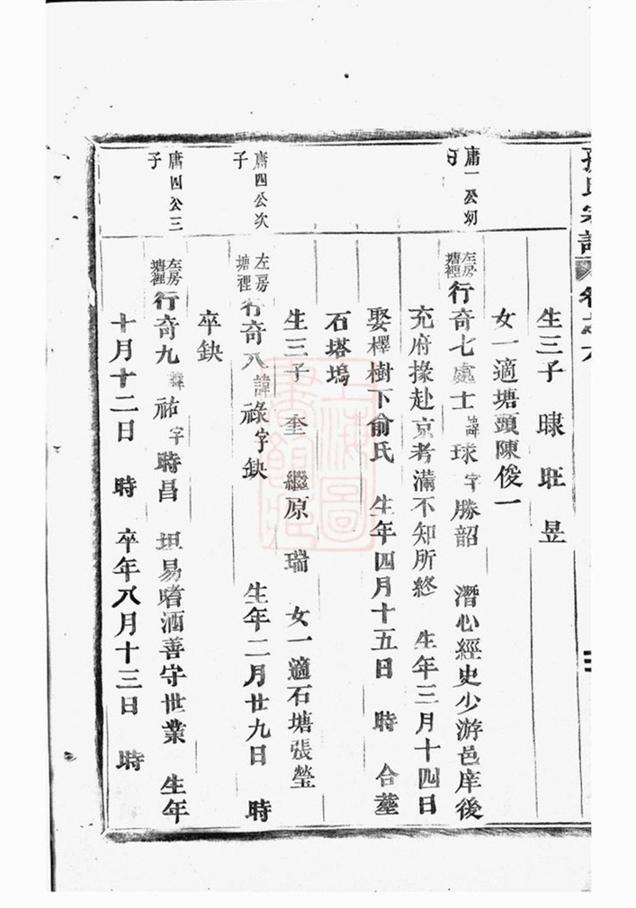 孫氏宗譜 卷之六
生三子 暕 旺 昱
女一適塘頭陳俊一
庸一公幼子
左房塘裡行奇七處士諱球字勝韶 潛心經史少游邑庠後
充府掾赴京考滿不知所終 生年三月十四日
娶檡樹下俞氏 生年四月十五日 時 合塟
石塔塢
生三子 奎 繼原 瑞 女一適石塘張瑩
庸四公次子
左房塘裡行奇八諱祿字缺 生年二月廿九日 時
卒缺
庸四公三子
左房塘裡行奇九諱祐字時昌 坦易嗜酒善守世業 生年
十月十二日 時 卒年八月十三日 時
上海圖書館藏